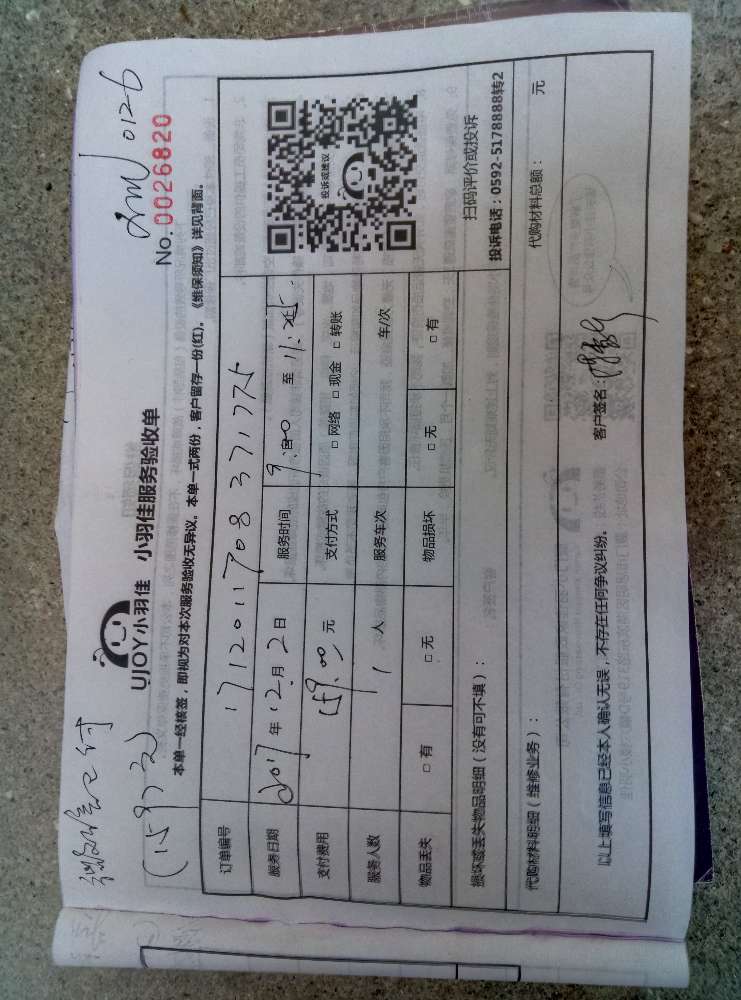 微信已付
(159元)
xm 0126
No.0026820
UJOY小羽佳 小羽佳服务验收单
本单一经核签，即视为对本次服务验收无异议。本单一式两份，客户留存一份(红)。《维保须知》详见背面。
订单编号
服务日期 2017年12月2日 服务时间 9:00 至
支付费用 159.00元 支付方式 □网络 □现金 □转账
服务人数 1人 服务车次 车/次
物品丢失 □有 □无 物品损坏 □无 □有
投诉或建议
扫码评价或投诉
投诉电话：0592-5178888转2
损坏或丢失物品明细（没有可不填）：
代购材料明细（维修业务）： 代购材料总额： 元
以上填写信息已经本人确认无误，不存在任何争议纠纷。 客户签名：